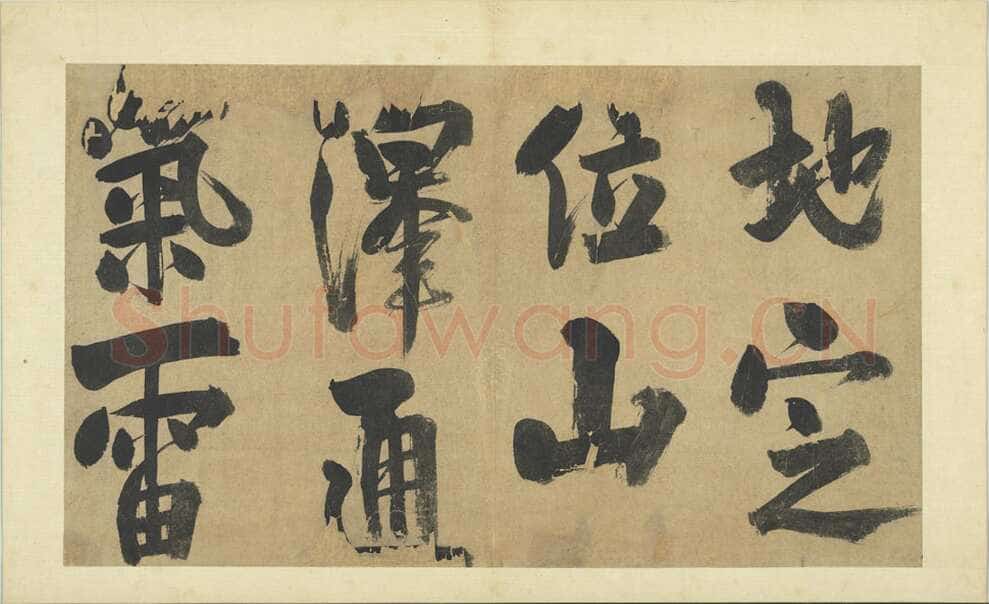 地定
位山
澤通
氣雷
Shufawang.CN